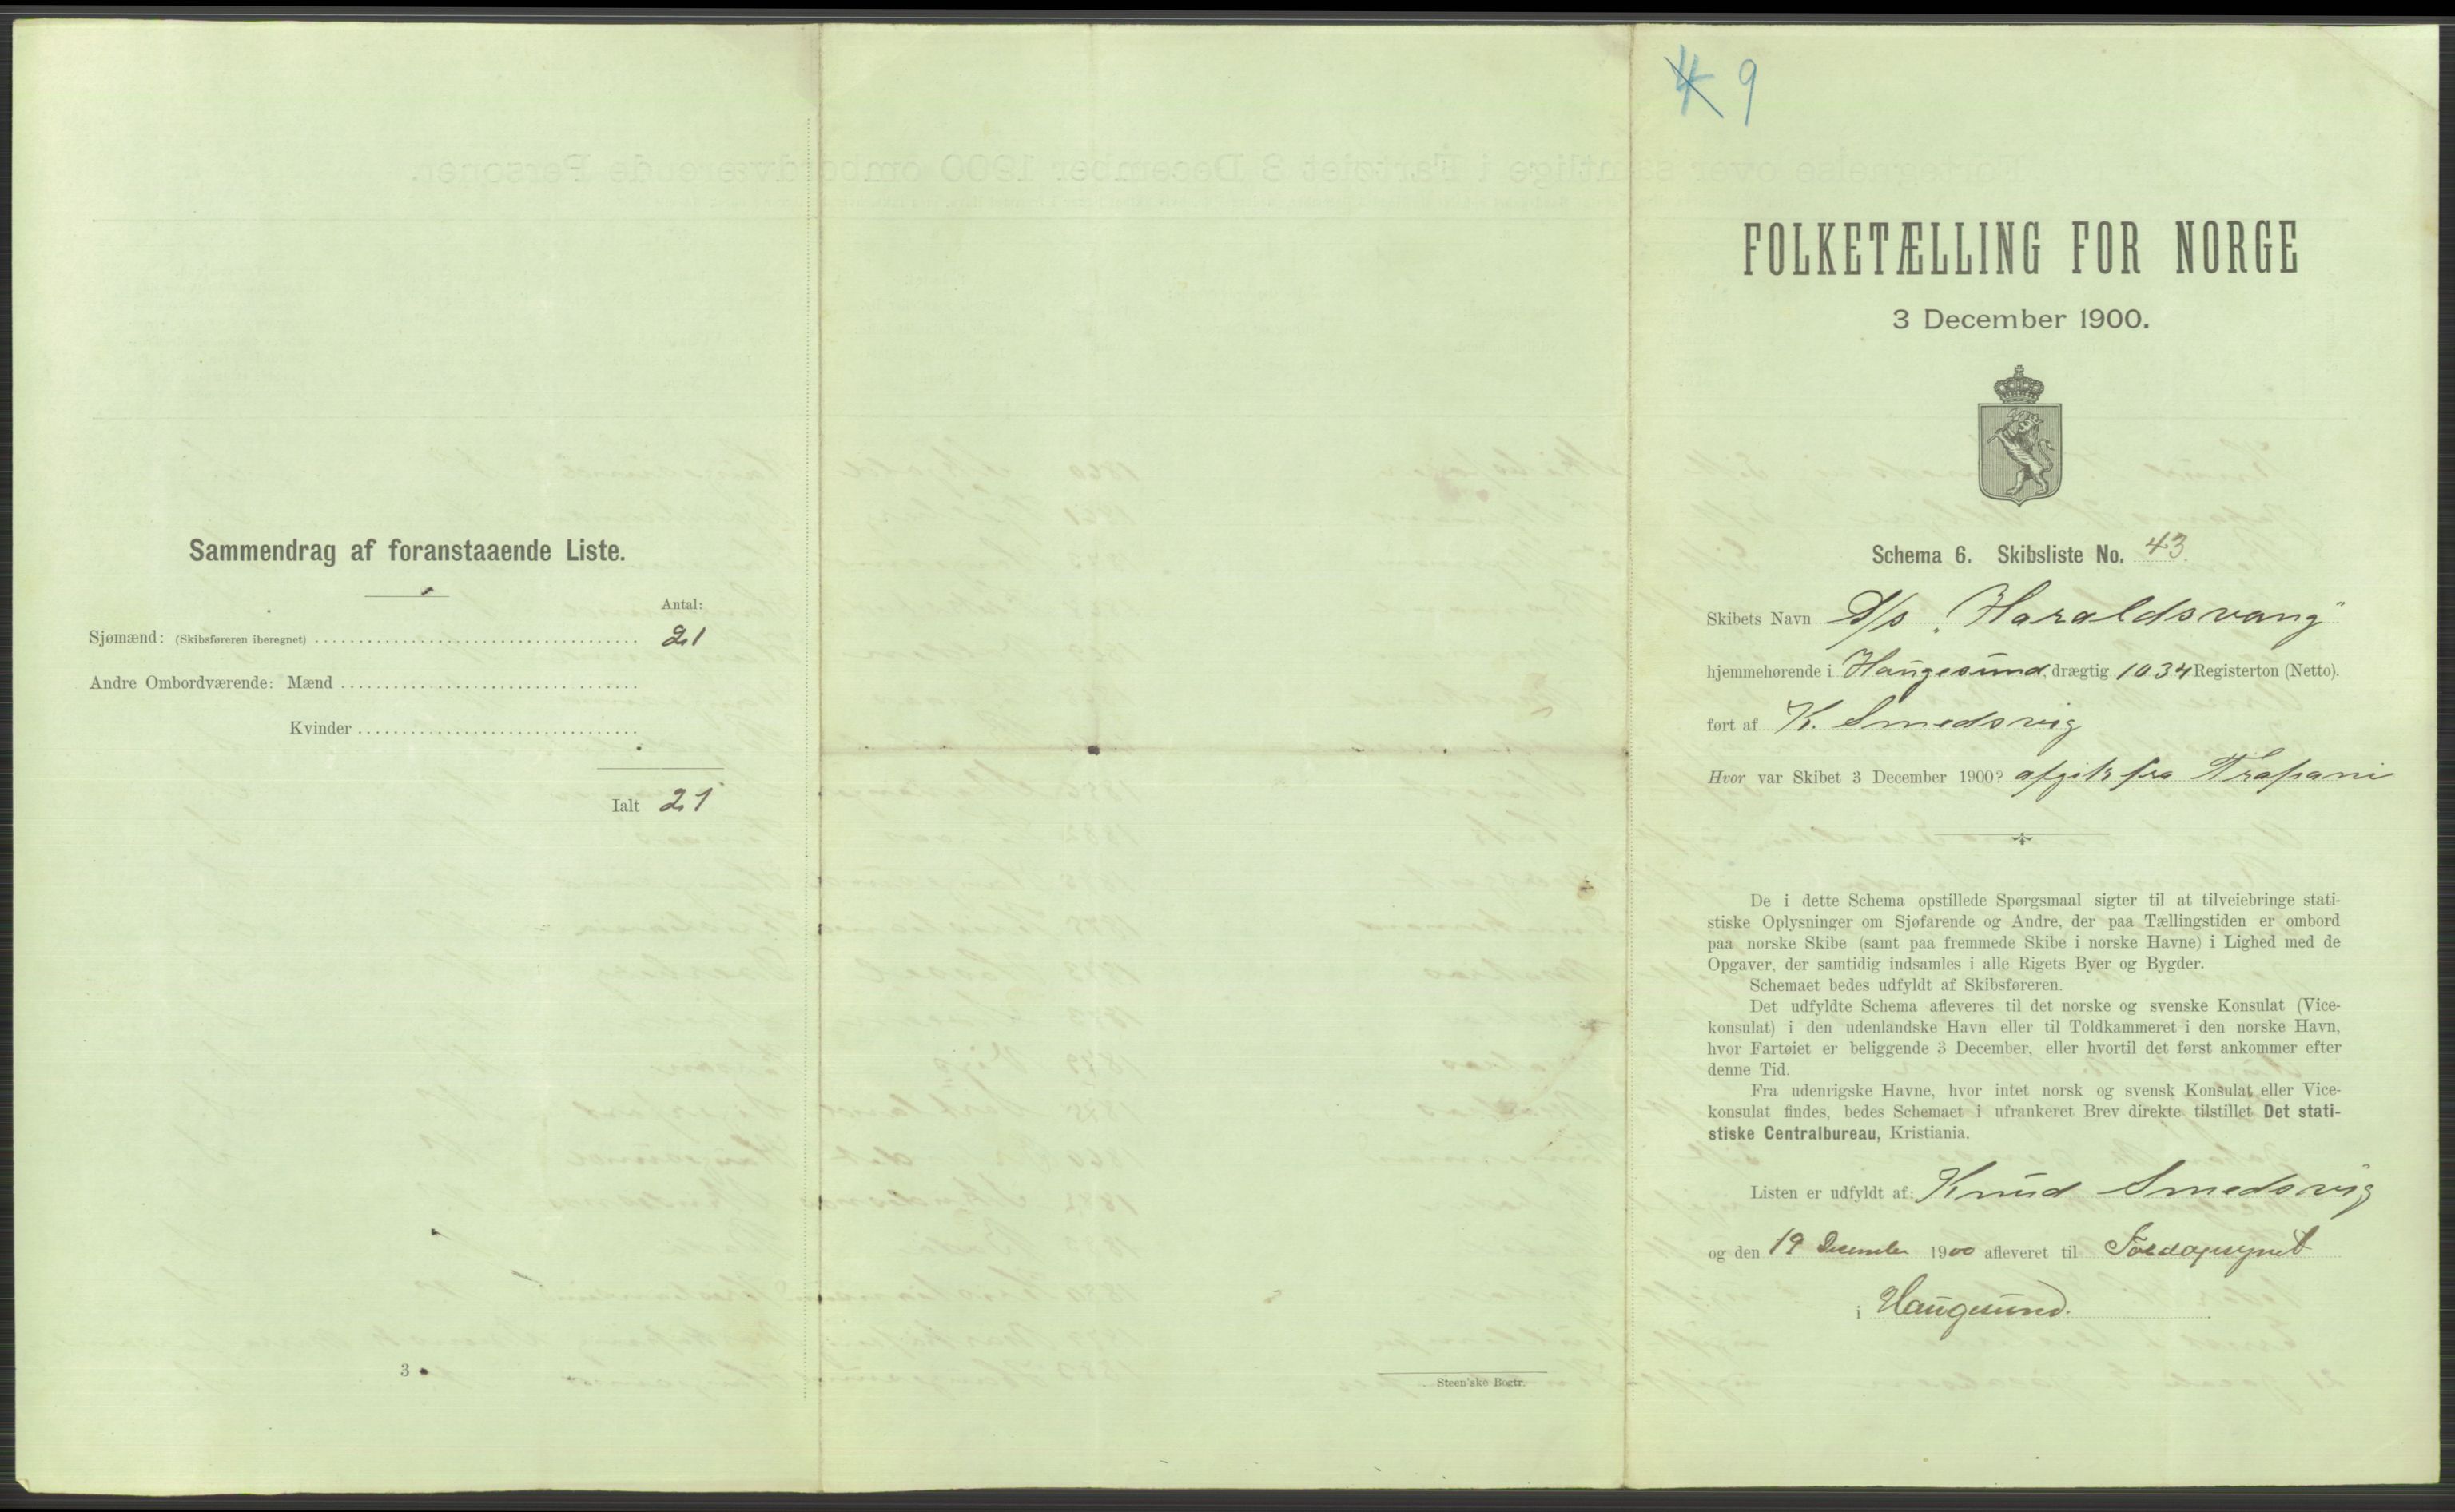 Sammendrag af foranstaaende Liste.
Antal:
Sjømænd: (Skibsføreren iberegnet) 21
Andre Ombordværende: Mænd
Kvinder
Ialt 21
3
Steen'ske Bogtr.
4 9
FOLKETÆLLING FOR NORGE
3 December 1900.
Schema 6. Skibsliste No. 43.
Skibets Navn D/s "Haraldsvang"
hjemmehørende i Haugesund, drægtig 1034 Registerton (Netto).
ført af K. Smedsvig
Hvor var Skibet 3 December 1900? afgik fra Trapani
De i dette Schema opstillede Spørgsmaal sigter til at tilveiebringe stati-
stiske Oplysninger om Sjøfarende og Andre, der paa Tællingstiden er ombord
paa norske Skibe (samt paa fremmede Skibe i norske Havne) i Lighed med de
Opgaver, der samtidig indsamles i alle Rigets Byer og Bygder.
Schemaet bedes udfyldt af Skibsføreren.
Det udfyldte Schema afleveres til det norske og svenske Konsulat (Vice-
konsulat) i den udenlandske Havn eller til Toldkammeret i den norske Havn,
hvor Fartøiet er beliggende 3 December, eller hvortil det først ankommer efter
denne Tid.
Fra udenrigske Havne, hvor intet norsk og svensk Konsulat eller Vice-
konsulat findes, bedes Schemaet i ufrankeret Brev direkte tilstillet Det stati-
stiske Centralbureau, Kristiania.
Listen er udfyldt af: Knud Smedsvig
og den 19 December 1900 afleveret til
i Haugesund.